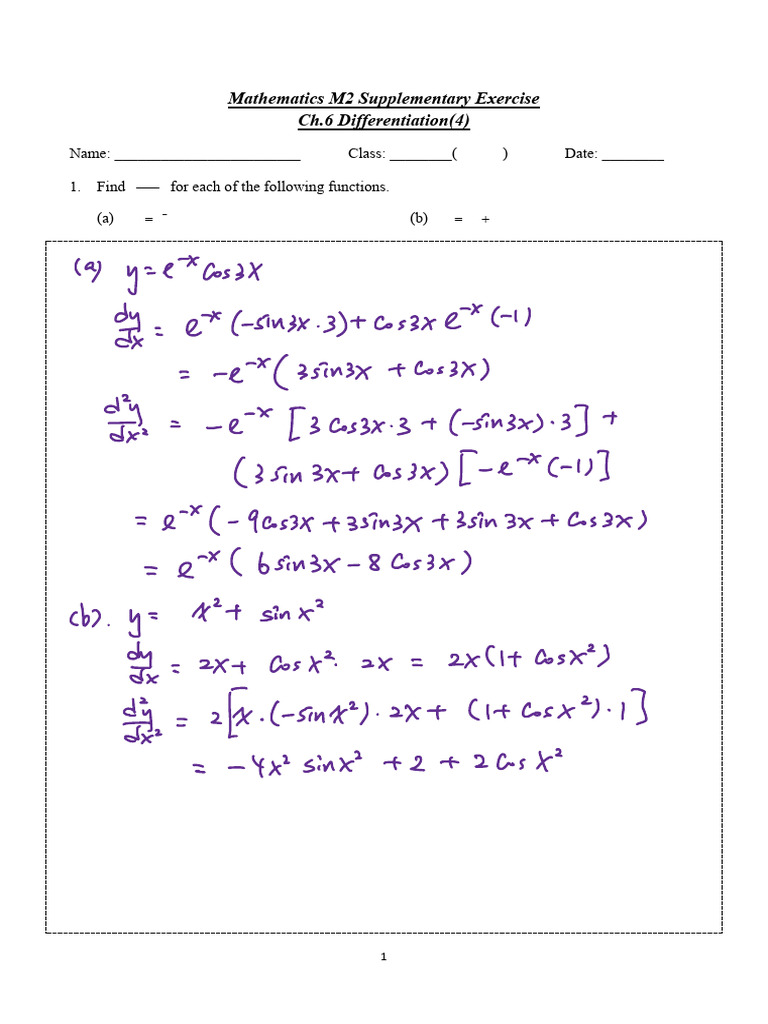 Mathematics M2 Supplementary Exercise
Ch.6 Differentiation(4)
Name: ________________________ Class: ________( ) Date: ________
1. Find — for each of the following functions.
(a) = ⁻ (b) = +
(a) y = e^-x cos3x
dy/dx = e^-x (-sin3x · 3) + cos3x e^-x (-1)
= -e^-x ( 3 sin3x + cos3x )
d²y/dx² = -e^-x [ 3 cos3x · 3 + (-sin3x) · 3 ] +
(3 sin 3x + cos3x) [ -e^-x (-1) ]
= e^-x ( -9cos3x + 3sin3x + 3sin 3x + cos3x )
= e^-x ( 6sin3x - 8 cos3x )
(b). y = x² + sin x²
dy/dx = 2x + cos x² · 2x = 2x(1 + cosx²)
d²y/dx² = 2[x · (-sin x²) · 2x + (1 + cos x²) · 1]
= -4x² sinx² + 2 + 2 cos x²
1